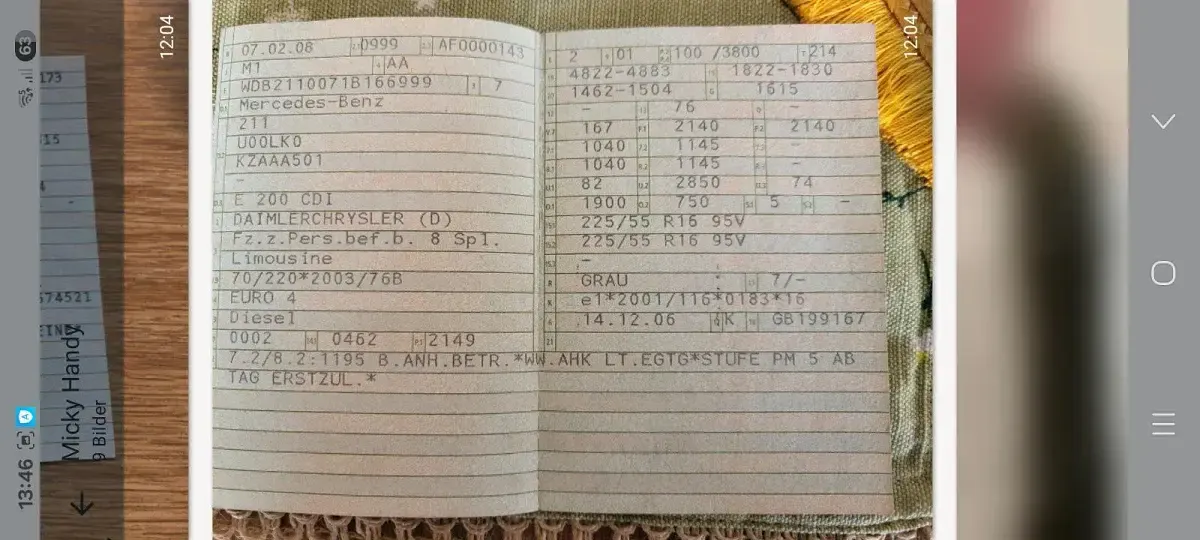 07.02.08 0999 AF0000143
M1 AA
WDB2110071B166999 7
Mercedes-Benz
211
U00LK0
KZAAA501
-
E 200 CDI
DAIMLERCHRYSLER (D)
Fz.z.Pers.bef.b. 8 Spl.
Limousine
70/220*2003/76B
EURO 4
Diesel
0002 0462 2149
7.2/8.2:1195 B.ANH.BETR.*WW.AHK LT.EGTG*STUFE PM 5 AB
TAG ERSTZUL.*
2 01 100 /3800 214
4822-4883 1822-1830
1462-1504 1615
- 76 -
167 2140 2140
1040 1145 -
1040 1145 -
82 2850 74
1900 750 5 -
225/55 R16 95V
225/55 R16 95V
-
GRAU 7/-
e1*2001/116*0183*16
14.12.06 K GB199167
21
12:04
12:04
13:46
63
Micky Handy
9 Bilder
173
15
4
574521